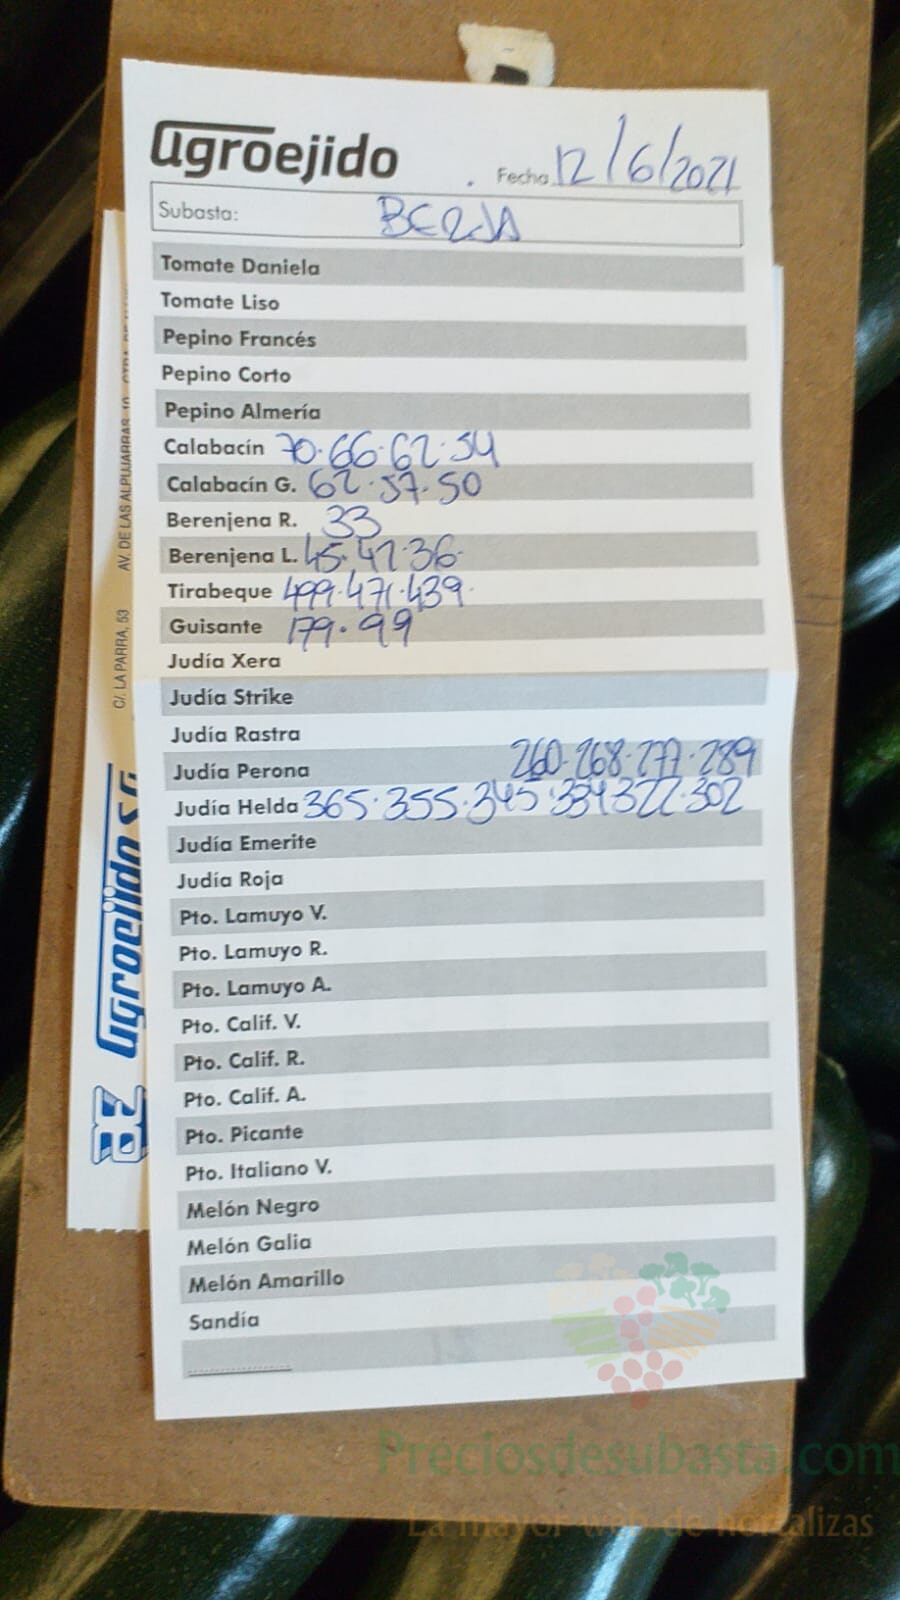 agroejido
Fecha 12/6/2021
Subasta: BERJA
Tomate Daniela
Tomate Liso
Pepino Francés
Pepino Corto
Pepino Almería
Calabacín 70·66·62·54
Calabacín G. 62·57·50
Berenjena R. 33
Berenjena L. 45·41·36·
Tirabeque 499·471·439·
Guisante 179·99
Judía Xera
Judía Strike
Judía Rastra
Judía Perona 260·268·277·289
Judía Helda 365·355·345·334 322·302
Judía Emerite
Judía Roja
Pto. Lamuyo V.
Pto. Lamuyo R.
Pto. Lamuyo A.
Pto. Calif. V.
Pto. Calif. R.
Pto. Calif. A.
Pto. Picante
Pto. Italiano V.
Melón Negro
Melón Galia
Melón Amarillo
Sandía
C/. LA PARRA, 53 AV. DE LAS ALPUJARRAS, 10
agroejido S.A.
AE
Preciosdesubasta.com
La mayor web de hortalizas